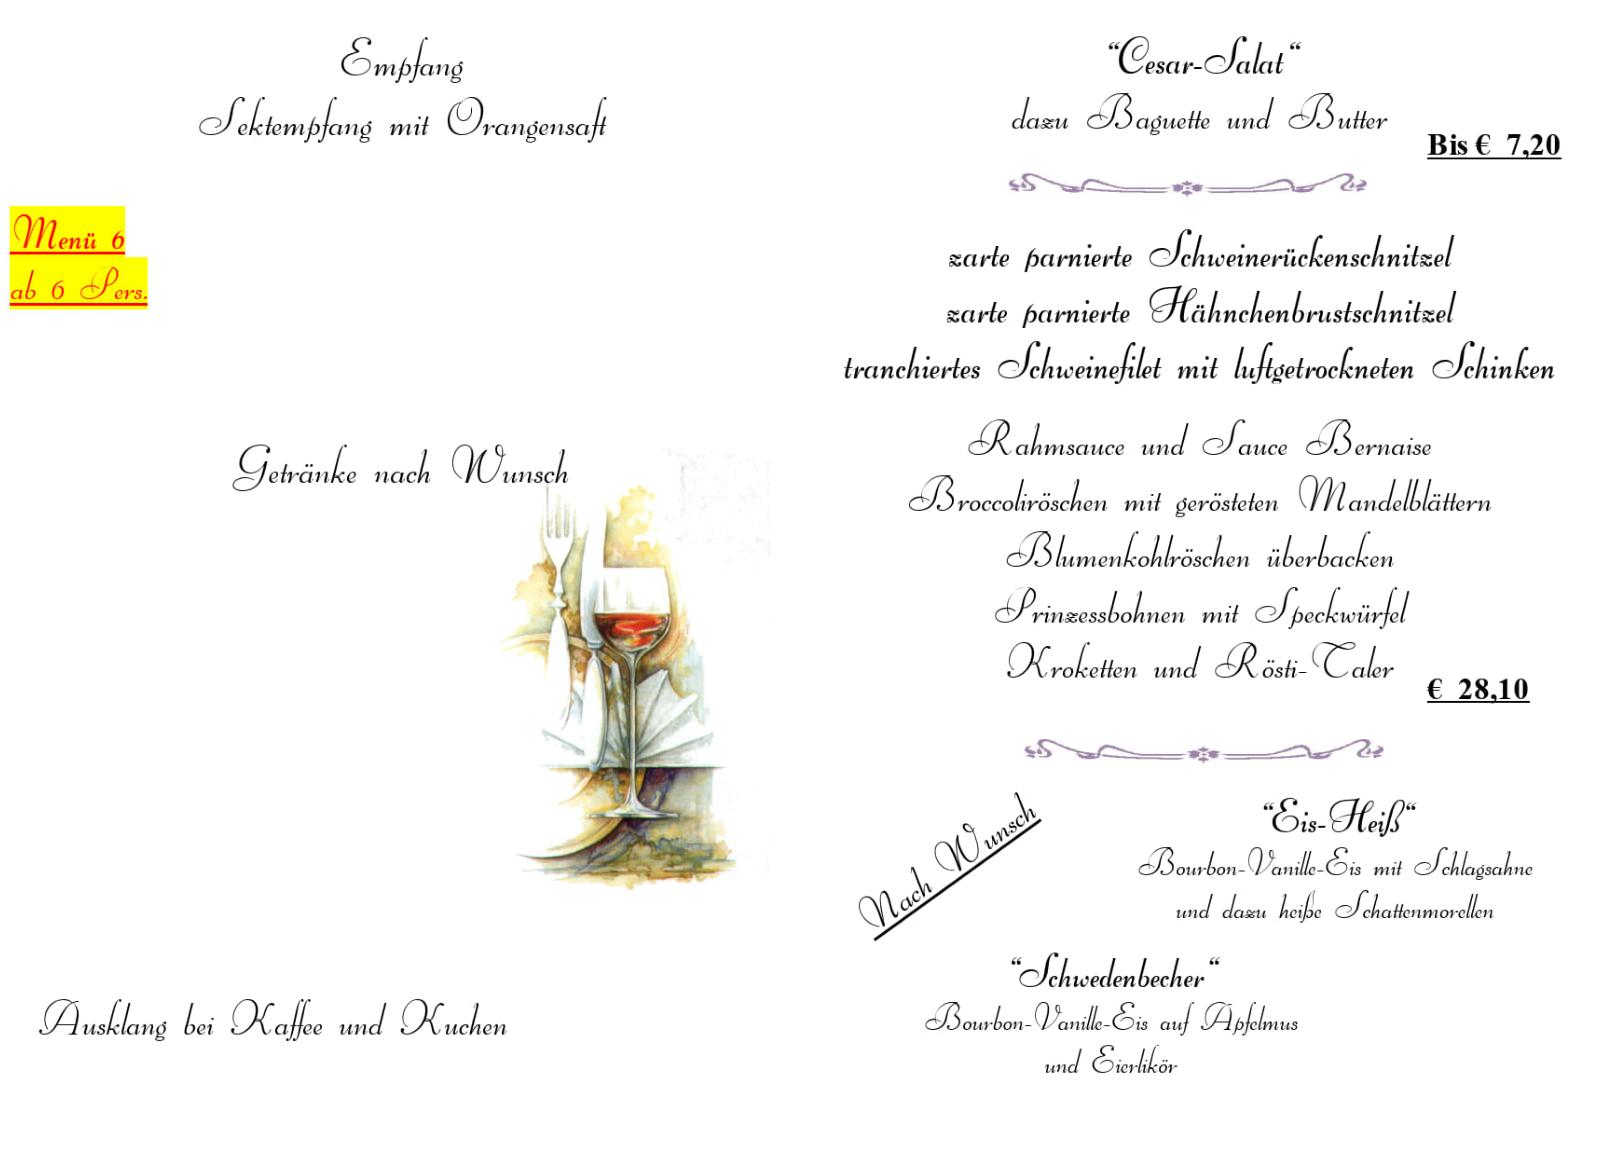 Empfang
Sektempfang mit Orangensaft
Menü 6
ab 6 Pers.
Getränke nach Wunsch
Ausklang bei Kaffee und Kuchen
“Cesar-Salat“
dazu Baguette und Butter
Bis € 7,20
zarte parnierte Schweinerückenschnitzel
zarte parnierte Hähnchenbrustschnitzel
tranchiertes Schweinefilet mit luftgetrockneten Schinken
Rahmsauce und Sauce Bernaise
Broccoliröschen mit gerösteten Mandelblättern
Blumenkohlröschen überbacken
Prinzessbohnen mit Speckwürfel
Kroketten und Rösti-Taler
€ 28,10
Nach Wunsch
“Eis-Heiß“
Bourbon-Vanille-Eis mit Schlagsahne
und dazu heiße Schattenmorellen
“Schwedenbecher“
Bourbon-Vanille-Eis auf Apfelmus
und Eierlikör